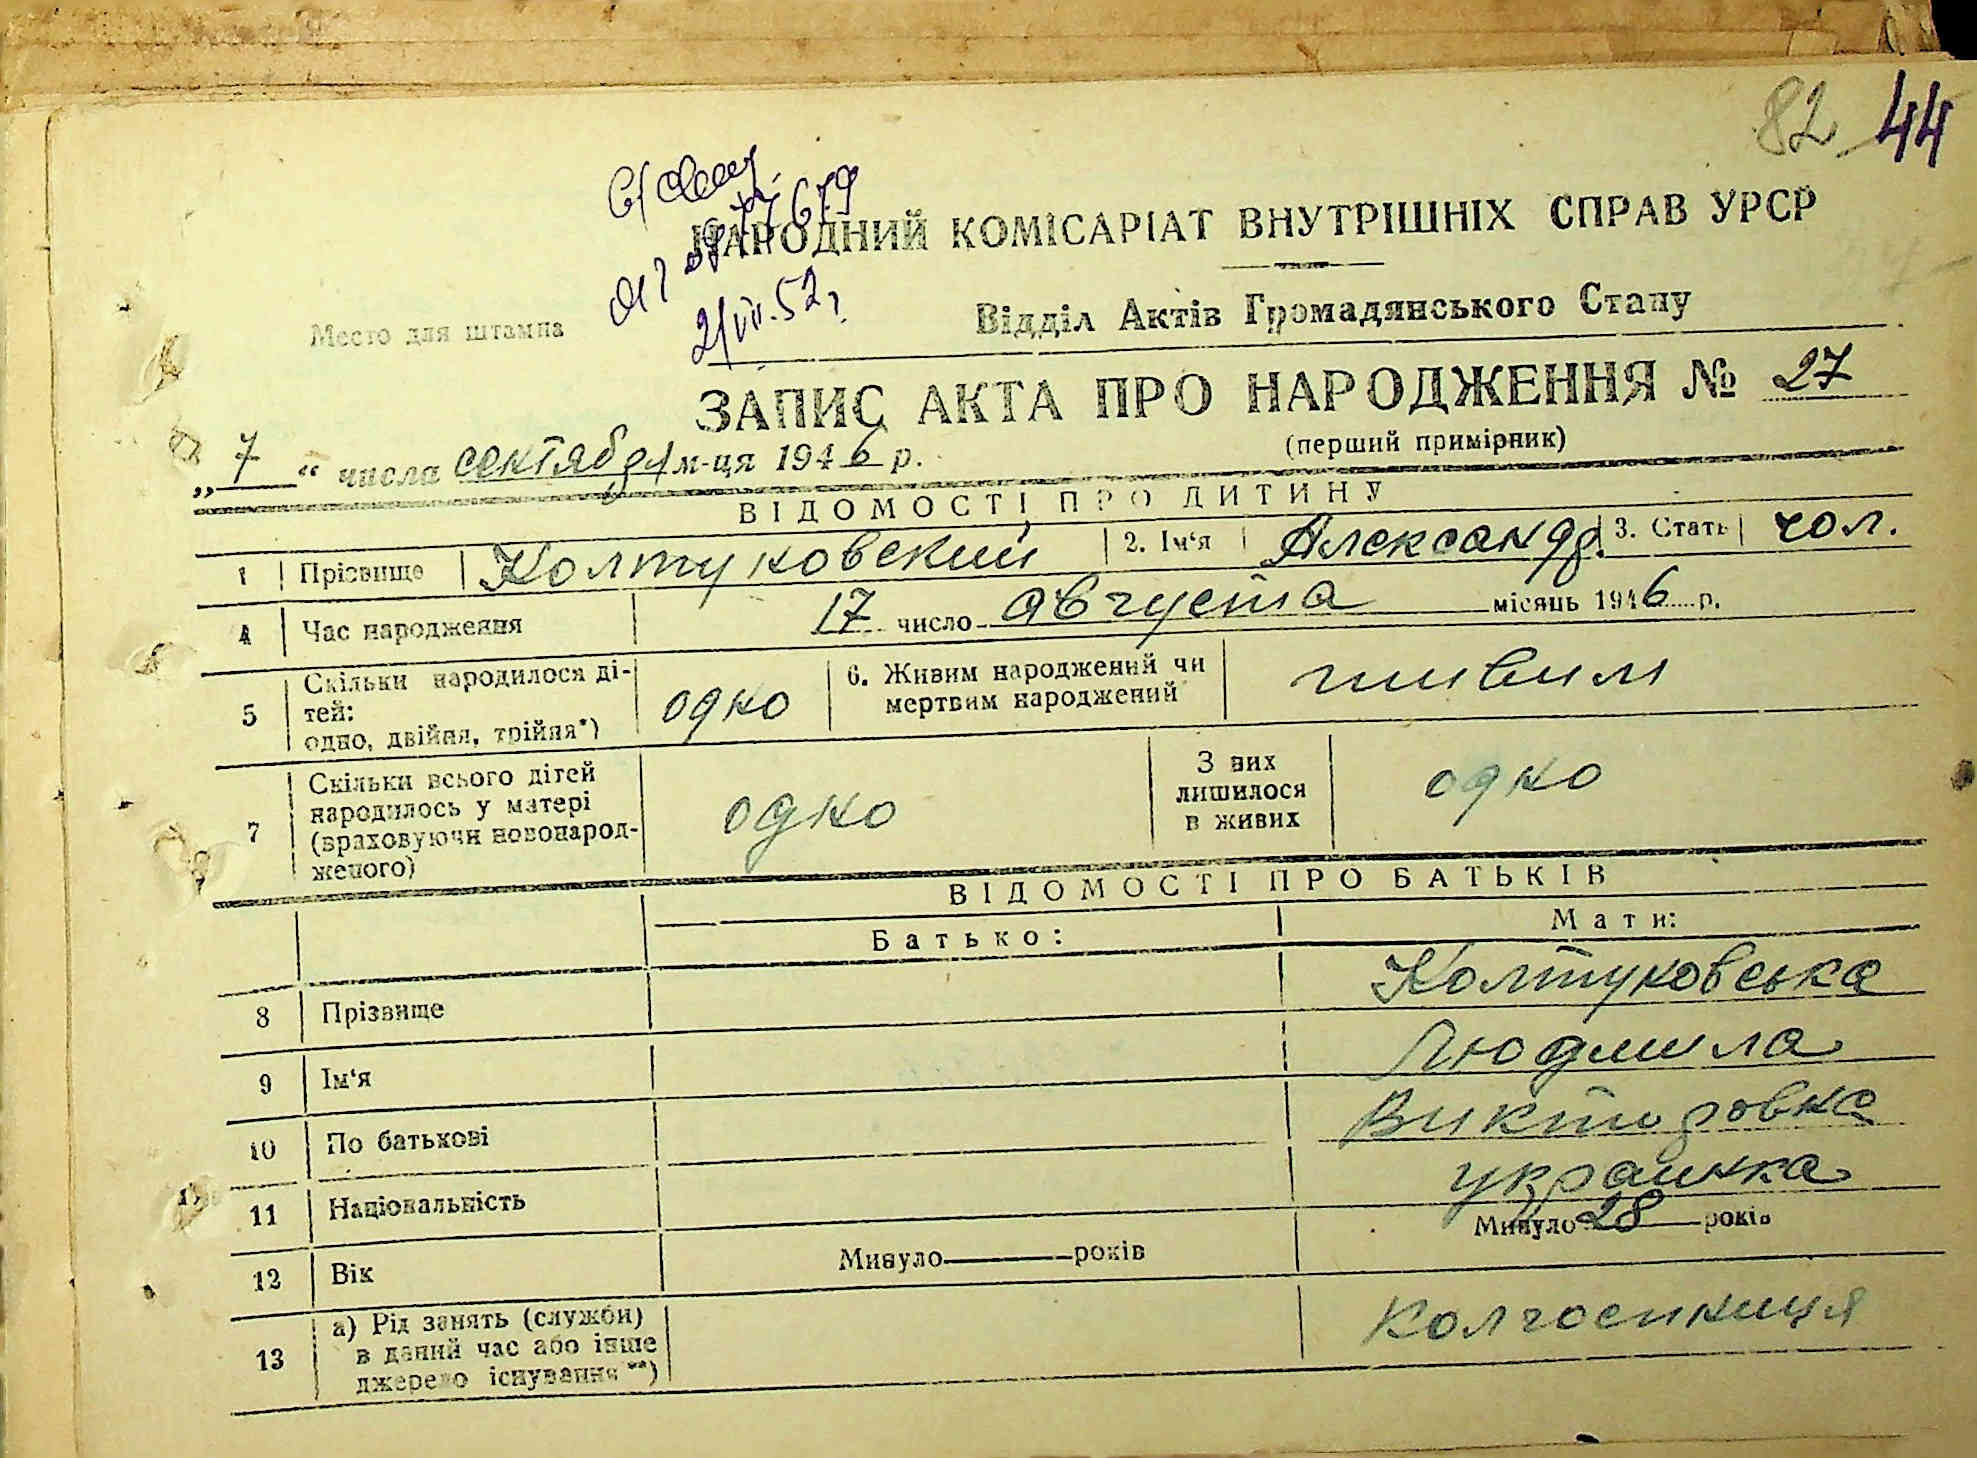 82 44
77679
НАРОДНИЙ КОМІСАРІАТ ВНУТРІШНІХ СПРАВ УРСР
21/VII.52 г.
Место для штампа
Відділ Актів Громадянського Стану
ЗАПИС АКТА ПРО НАРОДЖЕННЯ № 27
(перший примірник)
„ 7 “ числа сентября м-ця 1946 р.
ВІДОМОСТІ ПРО ДИТИНУ
1 Прізвище Колтуковский 2. Ім‘я Александр. 3. Стать чол.
4 Час народження 17 число августа місяць 1946 р.
5 Скільки народилося ді-
тей:
одно, двійня, трійня*) одно 6. Живим народжений чи
мертвим народжений живим
7 Скільки всього дітей
народилось у матері
(враховуючи новонарод-
женого) одно З них
лишилося
в живих одно
ВІДОМОСТІ ПРО БАТЬКІВ
Батько: Мати:
8 Прізвище Колтуковська
9 Ім‘я Людмила
10 По батькові Викторовна
11 Національність украинка
12 Вік Минуло років Минуло 28 років
13 а) Рід занять (служби)
в даний час або інше
джерело існування **) Колгоспниця